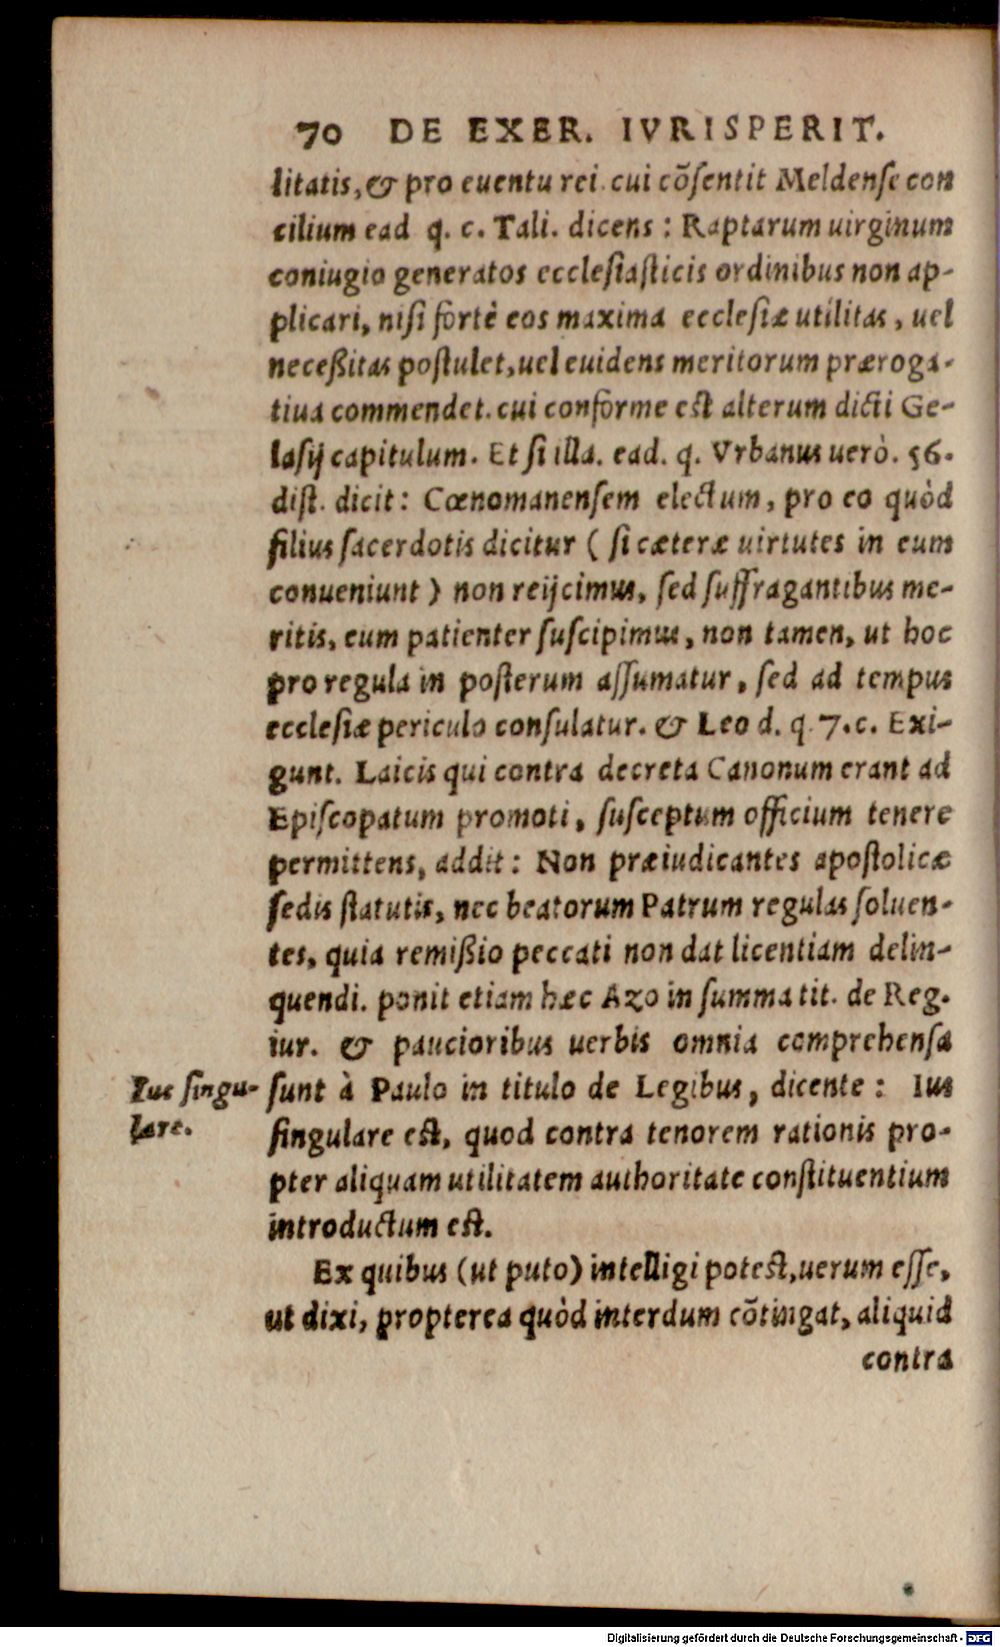 70 DE EXER. IVRISPERIT.
litatis, & pro euentu rei. cui cõſentit Meldenſe con
cilium ead q. c. Tali. dicens : Raptarum uirginum
coniugio generatos eccleſiaſticis ordinibus non ap-
plicari, niſi fortè eos maxima eccleſiæ utilitas, uel
neceßitas poſtulet, uel euidens meritorum præroga-
tiua commendet. cui conforme est alterum dicti Ge-
laſij capitulum. Et ſi illa. ead. q. Vrbanus uerò. 56.
diſt. dicit : Cœnomanenſem electum, pro eo quòd
filius ſacerdotis dicitur ( ſi cæteræ uirtutes in eum
conueniunt ) non reijcimus, ſed ſuffragantibus me-
ritis, eum patienter ſuſcipimus, non tamen, ut hoc
pro regula in poſterum aſſumatur, ſed ad tempus
eccleſiæ periculo conſulatur. & Leo d. q. 7. c. Exi-
gunt. Laicis qui contra decreta Canonum erant ad
Epiſcopatum promoti, ſuſceptum officium tenere
permittens, addit : Non præiudicantes apoſtolicæ
ſedis ſtatutis, nec beatorum Patrum regulas ſoluen-
tes, quia remißio peccati non dat licentiam delin-
quendi. ponit etiam hæc Azo in ſumma tit. de Reg.
iur. & paucioribus uerbis omnia comprehenſa
Ius ſingu-
lare.
ſunt à Paulo in titulo de Legibus, dicente : Ius
ſingulare est, quod contra tenorem rationis pro-
pter aliquam utilitatem authoritate conſtituentium
introductum est.
Ex quibus (ut puto) intelligi potest, uerum eſſe,
ut dixi, propterea quòd interdum cõtingat, aliquid
contra
Digitalisierung gefördert durch die Deutsche Forschungsgemeinschaft - DFG